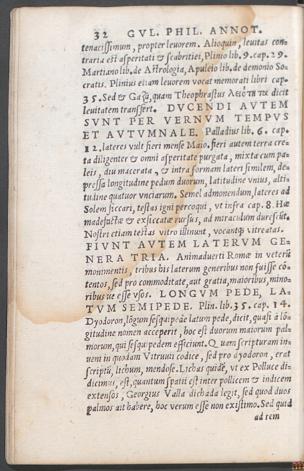 32 GVL. PHIL. ANNOT.
tenacissimum, propter leuorem. Alioquin, leuitas con-
traria est asperitati & scabritiei, Plinio lib. 9. cap. 29.
Martiano lib. de Astrologia, Apuleio lib. de demonio So-
cratis. Plinius etiam leuorem vocat memorati libri cap.
35. Sed & Gaza, quam Theophrastus dicit
leuitatem transfert. DVCENDI AVTEM
SVNT PER VERNVM TEMPVS
ET AVTVMNALE. Palladius lib. 6. cap.
12. lateres vult fieri mense Maio. fieri autem terra cre-
ta diligenter & omni asperitate purgata, mixta cum pa-
leis, diu macerata, & intra formam lateri similem, de-
pressa longitudine pedum duorum, latitudine vnius, alti-
tudine quatuor vnciarum. Semel admonendum, lateres ad
Solem siccari, testas igni percoqui, vt infra cap. 8. Hæ
madefactæ & exsiccatæ rursus, ad miraculum durescūt.
Nostri etiam testas vitro illinunt, vocantq; vitreatas.
FIVNT AVTEM LATERVM GE-
NERA TRIA. Animaduerti Romæ in veterū
monimentis, tribus his laterum generibus non fuisse cō-
tentos, sed pro commoditate, aut gratia, maioribus, mino-
ribus ue esse vsos. LONGVM PEDE, LA-
TVM SEMIPEDE. Plin. lib. 35. cap. 14.
Dyodoron, lōgum sesquipede latum pede, dicit, quasi à lō-
gitudine nomen acceperit, hoc est duorum maiorum pal-
morum, qui sesquipedem efficiunt. Quem scripturam in-
ueni in quodam Vitruuij codice, sed pro dyodoron, erat
scriptū, lichum, mendose. Lichas quidē, vt ex Polluce di-
dicimus, est, quantum spatij est inter pollicem & indicem
extensos, Georgius Valla dichada legit, sed quod duos
palmos ait habere, hoc verum esse non existimo. Sed quid
ad rem